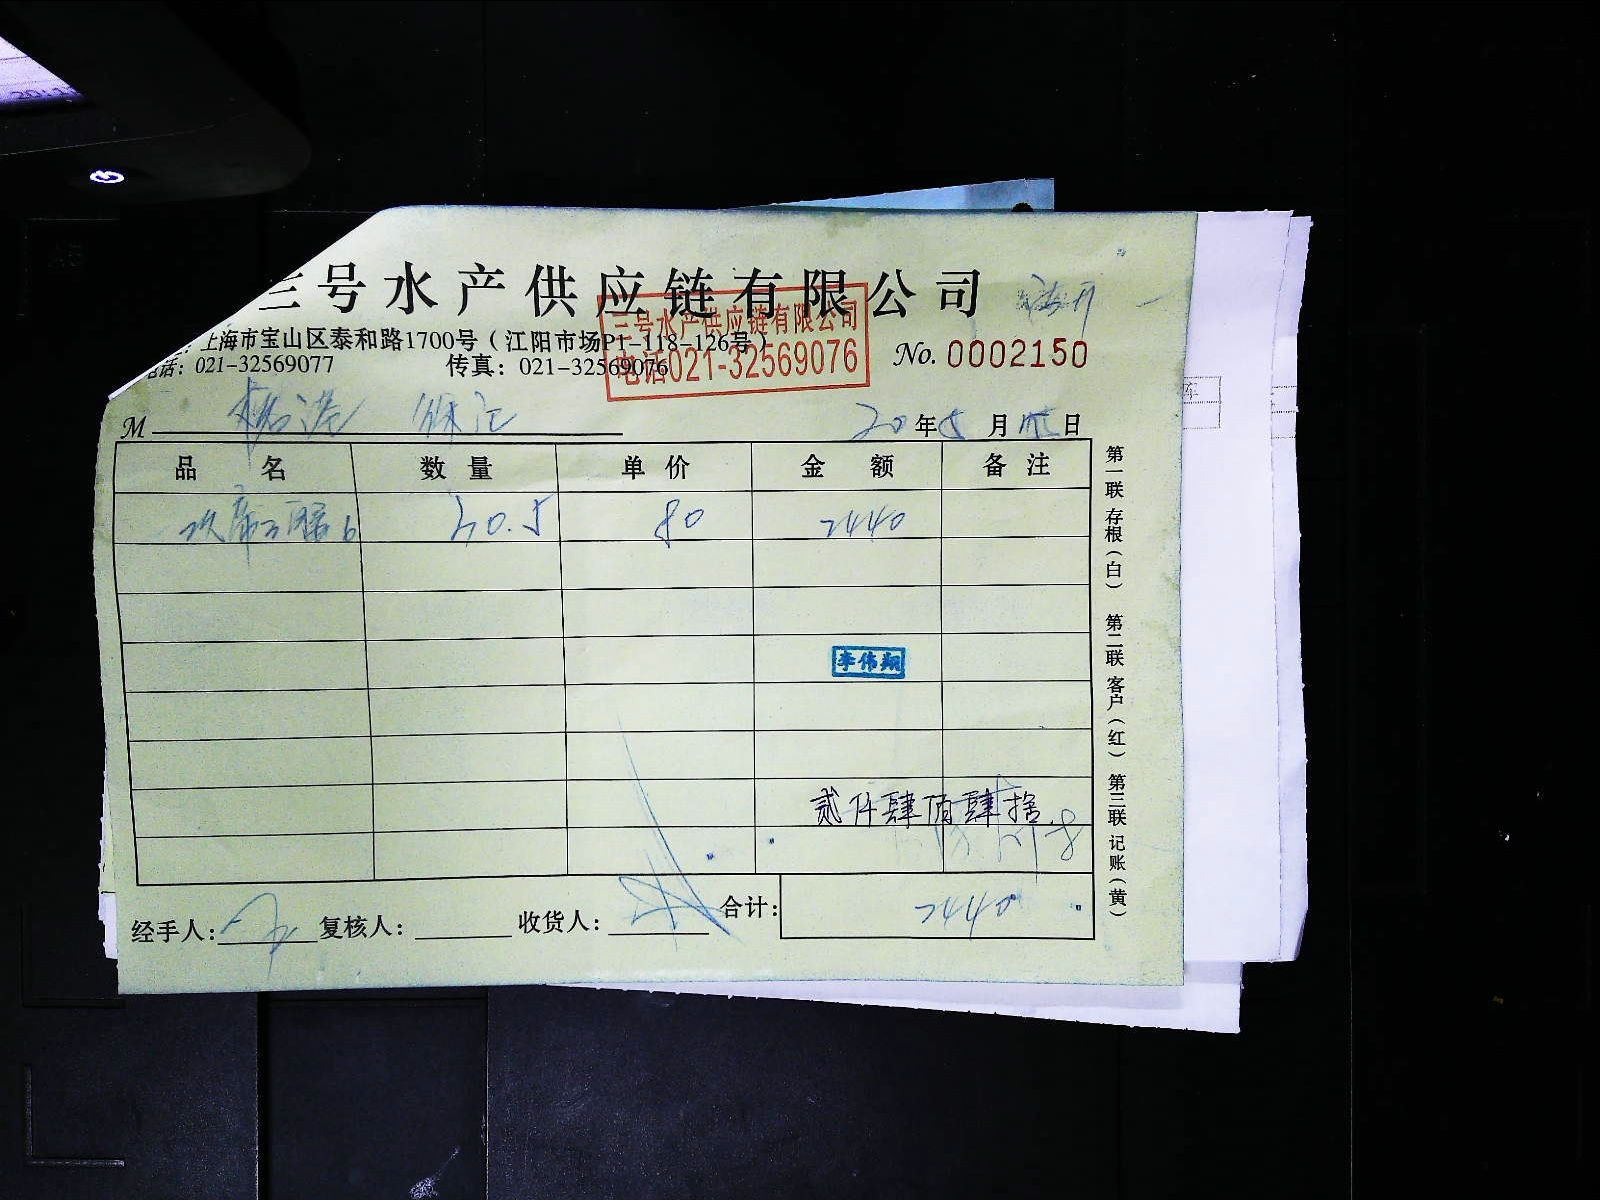 三号水产供应链有限公司
上海市宝山区泰和路1700号（江阳市场P1-118-126号）
电话：021-32569077 传真：021-32569076
三号水产供应链有限公司
电话021-32569076
No. 0002150
M
20年 月 日
品名 数量 单价 金额 备注
30.5 80 2440
李伟翔
贰仟肆佰肆拾
经手人： 复核人： 收货人： 合计： 2440
第一联 存根（白） 第二联 客户（红） 第三联 记账（黄）